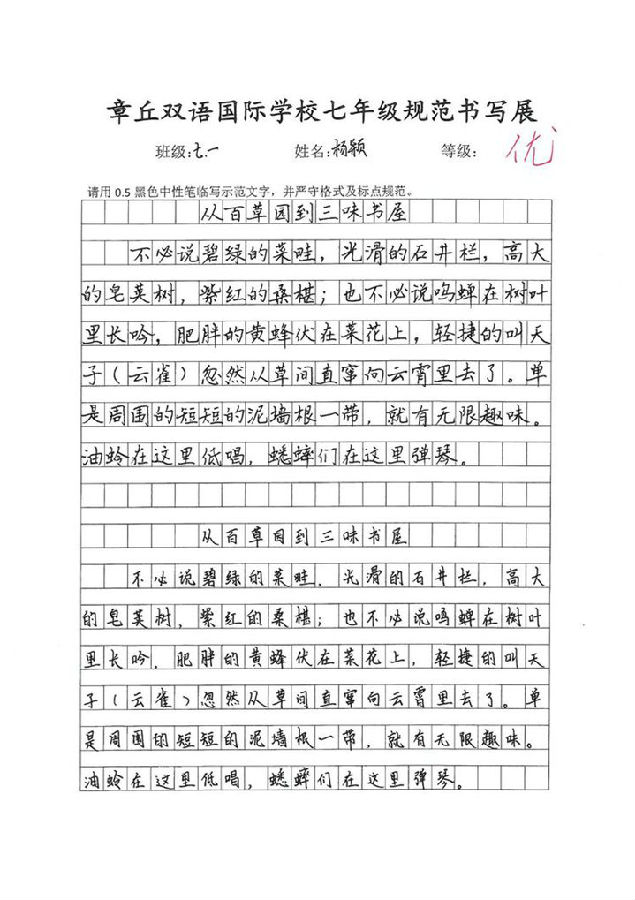 章丘双语国际学校七年级规范书写展
班级:七.一 姓名:杨颖 等级: 优
请用 0.5 黑色中性笔临写示范文字，并严守格式及标点规范。
从百草园到三味书屋
不必说碧绿的菜畦，光滑的石井栏，高大
的皂荚树，紫红的桑椹；也不必说鸣蝉在树叶
里长吟，肥胖的黄蜂伏在菜花上，轻捷的叫天
子（云雀）忽然从草间直窜向云霄里去了。单
是周围的短短的泥墙根一带，就有无限趣味。
油蛉在这里低唱，蟋蟀们在这里弹琴。
从百草园到三味书屋
不必说碧绿的菜畦，光滑的石井栏，高大
的皂荚树，紫红的桑椹；也不必说鸣蝉在树叶
里长吟，肥胖的黄蜂伏在菜花上，轻捷的叫天
子（云雀）忽然从草间直窜向云霄里去了。单
是周围的短短的泥墙根一带，就有无限趣味。
油蛉在这里低唱，蟋蟀们在这里弹琴。